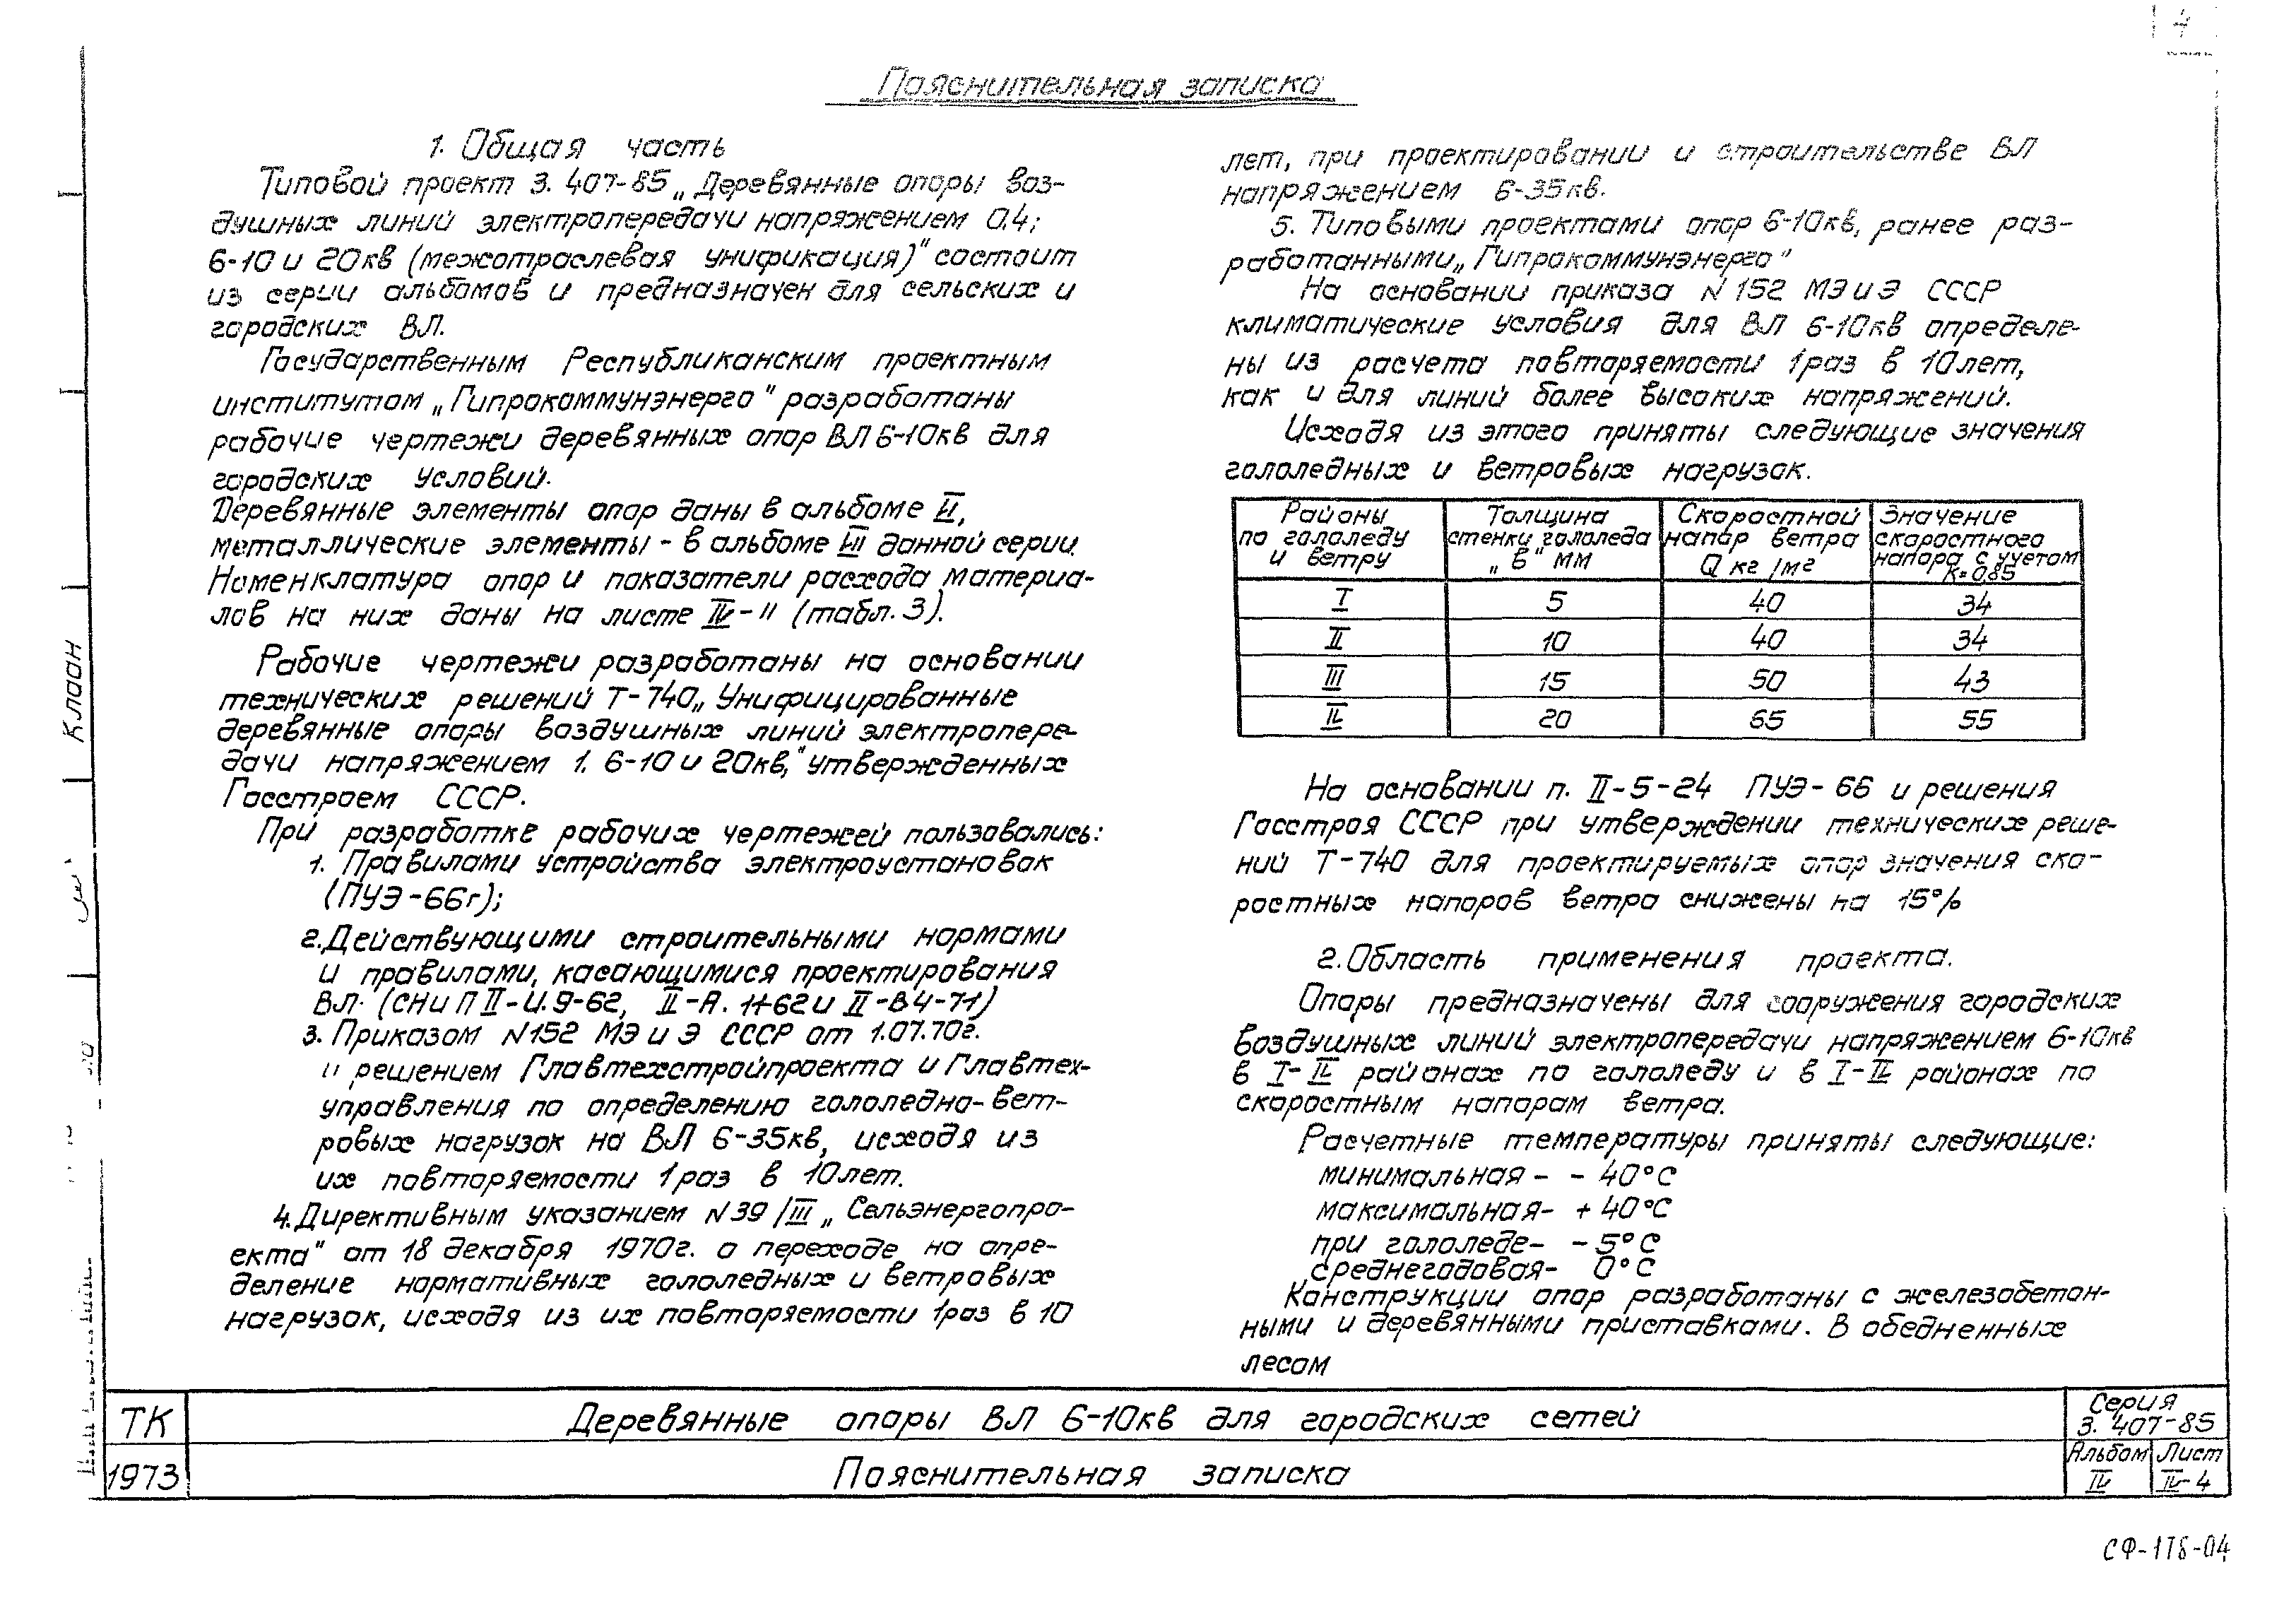 4
Пояснительная записка
1. Общая часть
Типовой проект 3.407-85 „Деревянные опоры воз-
душных линий электропередачи напряжением 0,4;
6-10 и 20кв (межотраслевая унификация)" состоит
из серии альбомов и предназначен для сельских и
городских ВЛ.
Государственным Республиканским проектным
институтом „Гипрокоммунэнерго" разработаны
рабочие чертежи деревянных опор ВЛ 6-10кв для
городских условий.
Деревянные элементы опор даны в альбоме VI,
металлические элементы - в альбоме VII данной серии.
Номенклатура опор и показатели расхода материа-
лов на них даны на листе IV-11 (табл. 3).
Рабочие чертежи разработаны на основании
технических решений Т-740 „Унифицированные
деревянные опоры воздушных линий электропере-
дачи напряжением 1. 6-10 и 20кв," утвержденных
Госстроем СССР.
При разработке рабочих чертежей пользовались:
1. Правилами устройства электроустановок
(ПУЭ-66г);
2. Действующими строительными нормами
и правилами, касающимися проектирования
ВЛ. (СНиП II-И.9-62, II-А.11-62 и II-В4-71)
3. Приказом N152 МЭ и Э СССР от 1.07.70г.
и решением Главтехстройпроекта и Главтех-
управления по определению гололедно-вет-
ровых нагрузок на ВЛ 6-35кв, исходя из
их повторяемости 1 раз в 10лет.
4. Директивным указанием N39/III „Сельэнергопро-
екта" от 18 декабря 1970г. о переходе на опре-
деление нормативных гололедных и ветровых
нагрузок, исходя из их повторяемости 1раз в 10
лет, при проектировании и строительстве ВЛ
напряжением 6-35кв.
5. Типовыми проектами опор 6-10кв, ранее раз-
работанными „Гипрокоммунэнерго"
На основании приказа N152 МЭ и Э СССР
климатические условия для ВЛ 6-10кв определе-
ны из расчета повторяемости 1раз в 10лет,
как и для линий более высоких напряжений.
Исходя из этого приняты следующие значения
гололедных и ветровых нагрузок.
Районы по гололеду и ветру | Толщина стенки гололеда „в" мм | Скоростной напор ветра Q кг/м2 | Значение скоростного напора с учетом К=0,85
I | 5 | 40 | 34
II | 10 | 40 | 34
III | 15 | 50 | 43
IV | 20 | 65 | 55
На основании п. II-5-24 ПУЭ-66 и решения
Госстроя СССР при утверждении технических реше-
ний Т-740 для проектируемых опор значения ско-
ростных напоров ветра снижены на 15%
2. Область применения проекта.
Опоры предназначены для сооружения городских
воздушных линий электропередачи напряжением 6-10кв
в I-IV районах по гололеду и в I-IV районах по
скоростным напорам ветра.
Расчетные температуры приняты следующие:
минимальная- - 40°С
максимальная- + 40°С
при гололеде- - 5°С
среднегодовая- 0°С
Конструкции опор разработаны с железобетон-
ными и деревянными приставками. В обедненных
лесом
ТК
1973
Деревянные опоры ВЛ 6-10кв для городских сетей
Пояснительная записка
Серия
3.407-85
Альбом IV
Лист IV-4
Клоан
СФ-178-04